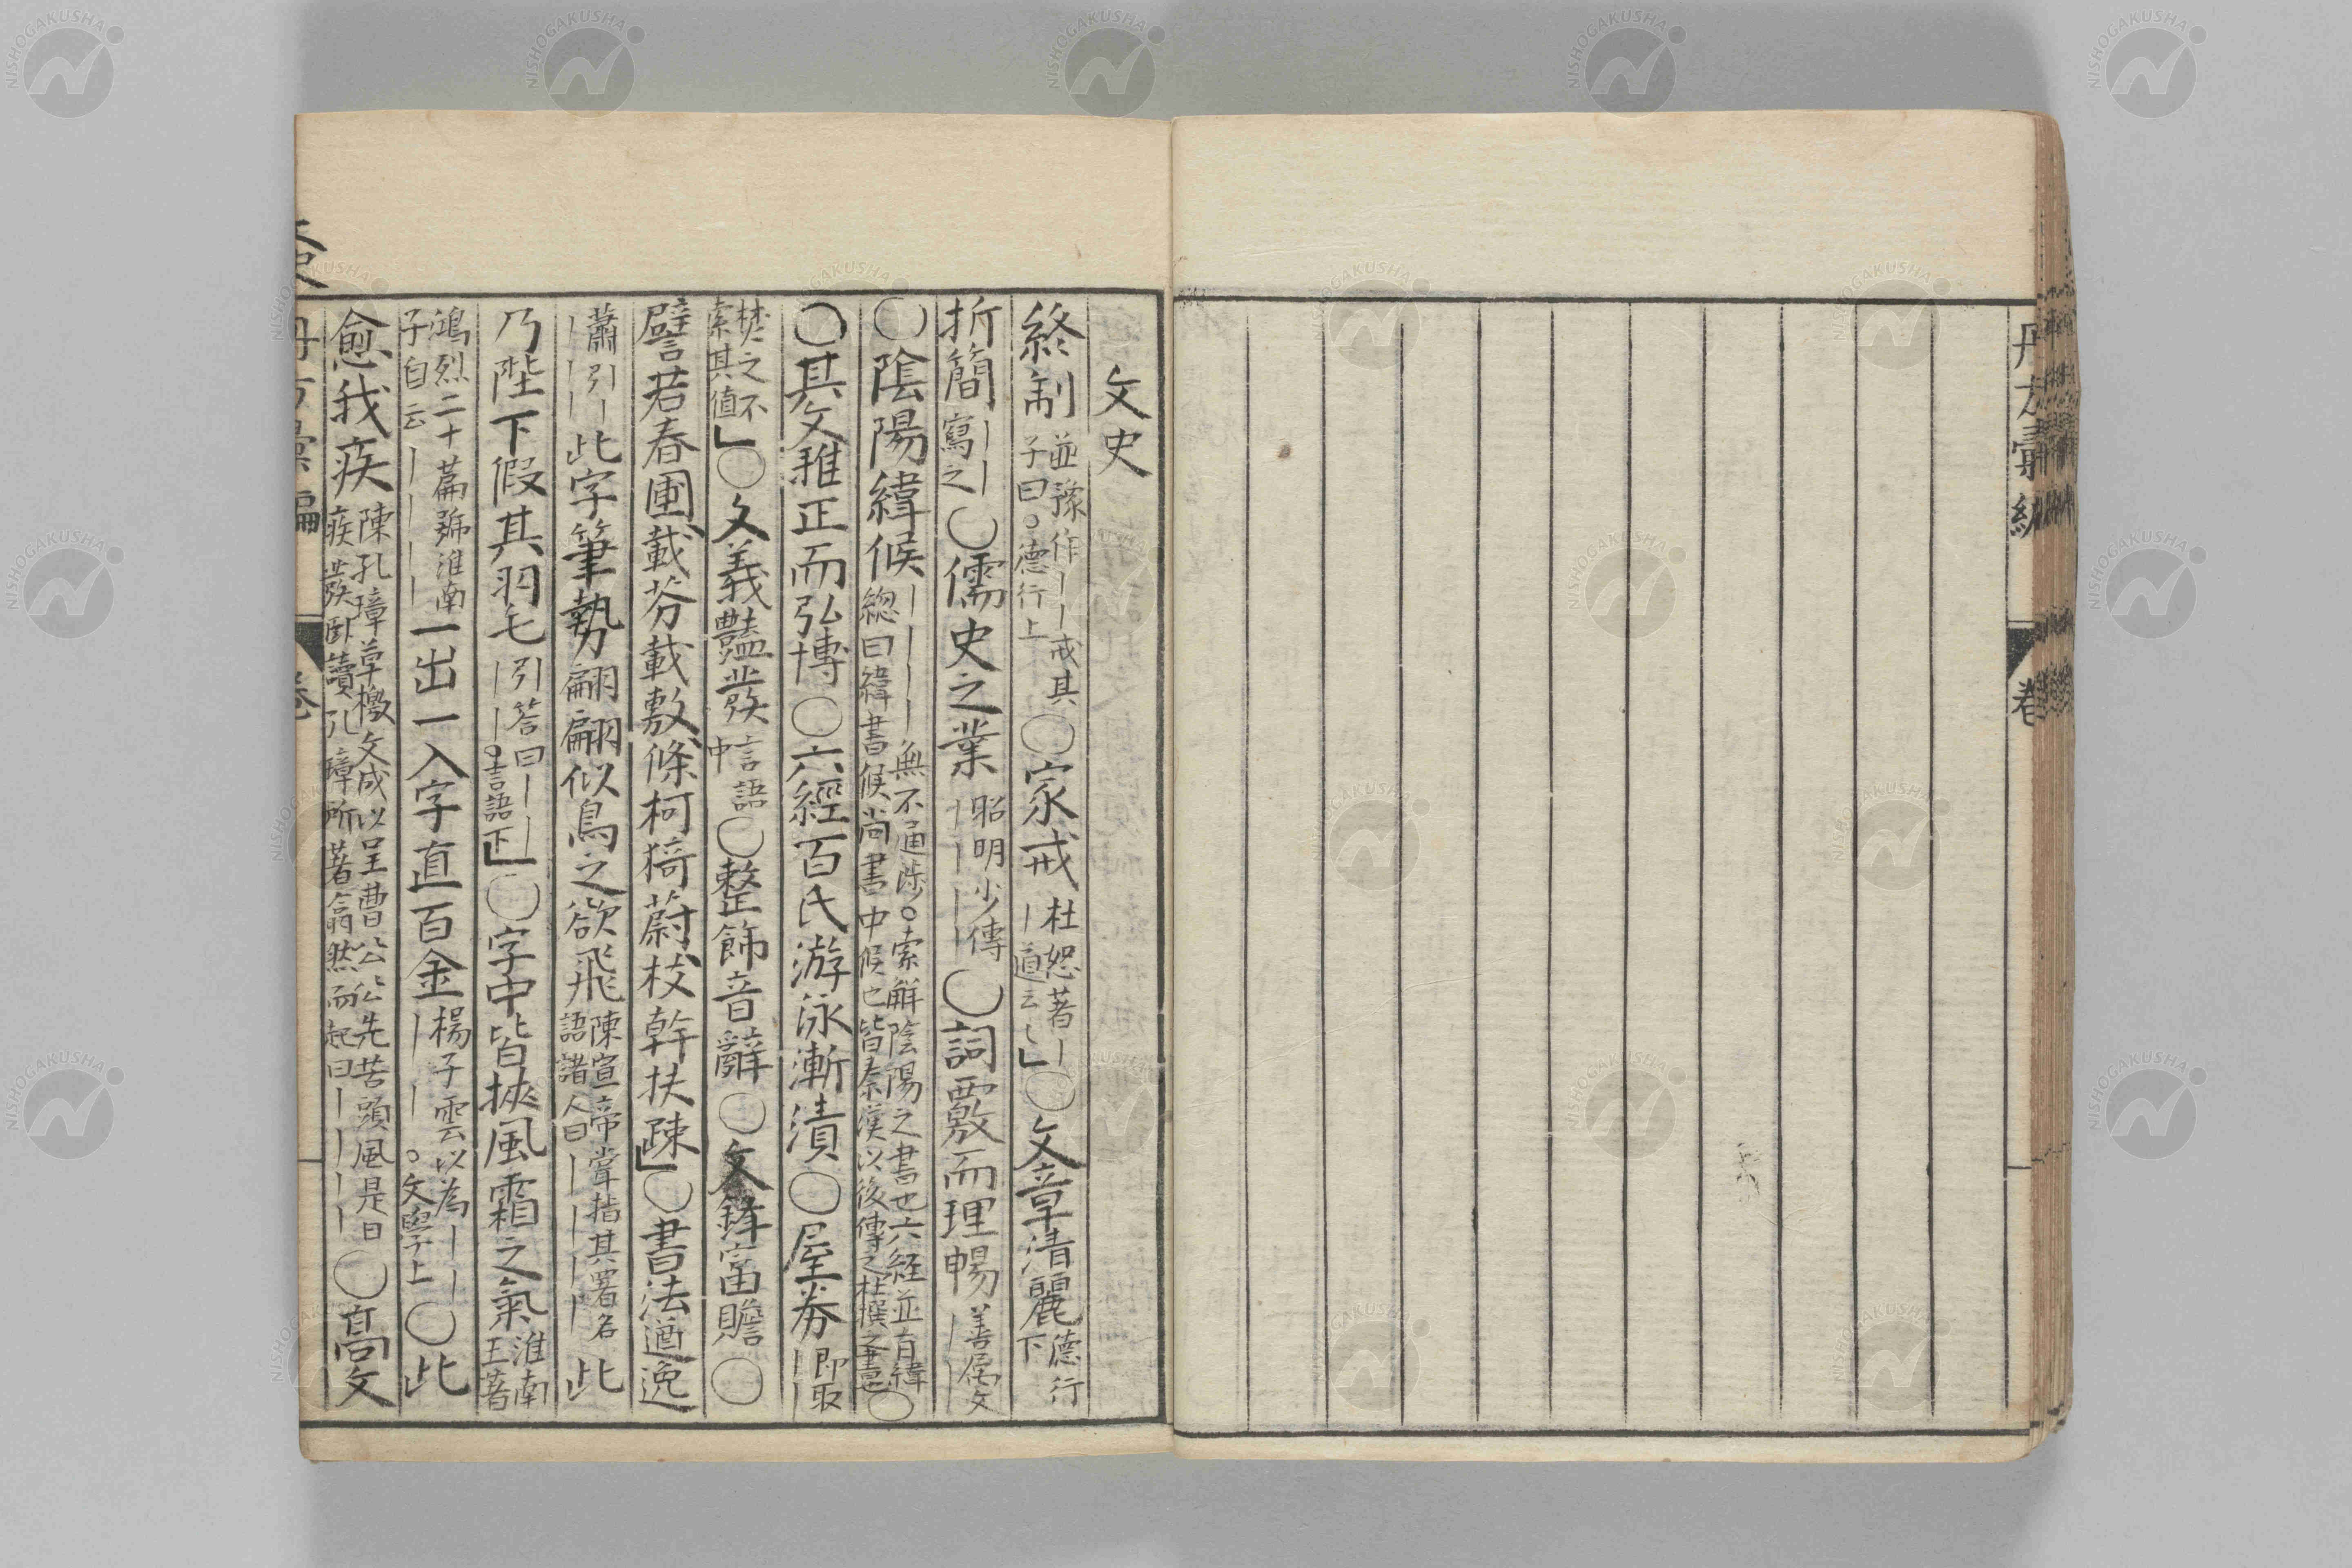 文史
終制 並豫作｜｜戒其子曰。德行上 〇家戒 杜恕著｜｜道云〻」〇文章清麗 德行下
折簡 寫之｜｜ 〇儒史之業 昭明少傳｜｜｜｜ 〇詞覈而理暢 善屬文｜｜
〇陰陽緯候 ｜｜｜｜無不通涉。索解陰陽之書也六経並有緯総曰緯書候尚書中候也皆秦漢以後傳之杜撰之書也〇
〇其文雅正而弘博〇六經百氏游泳漸漬〇屋券 ｜｜即取
焚之不索其値」〇文義豔發 言語中 〇整飾音辭〇文鋒富贍〇
譬若春圃載芬載敷條柯猗蔚枝幹扶疎」〇書法遒逸
蕭引｜｜｜｜此字筆勢翩翩似鳥之欲飛 陳宣帝嘗指其署名語諸人曰｜｜｜｜ 此
乃陛下假其羽毛 引答曰｜｜｜｜｜。言語下」〇字中皆挾風霜之氣 淮南王著
鴻烈二十萹號淮南子自云｜｜｜｜ 一出一入字直百金 楊子雲以為｜｜｜｜。文學上 〇此
愈我疾 陳孔璋草檄文成以呈曹公公先苦頭風是日疾發臥讀孔璋所著翕然而起曰｜｜｜｜ 〇高文
卷